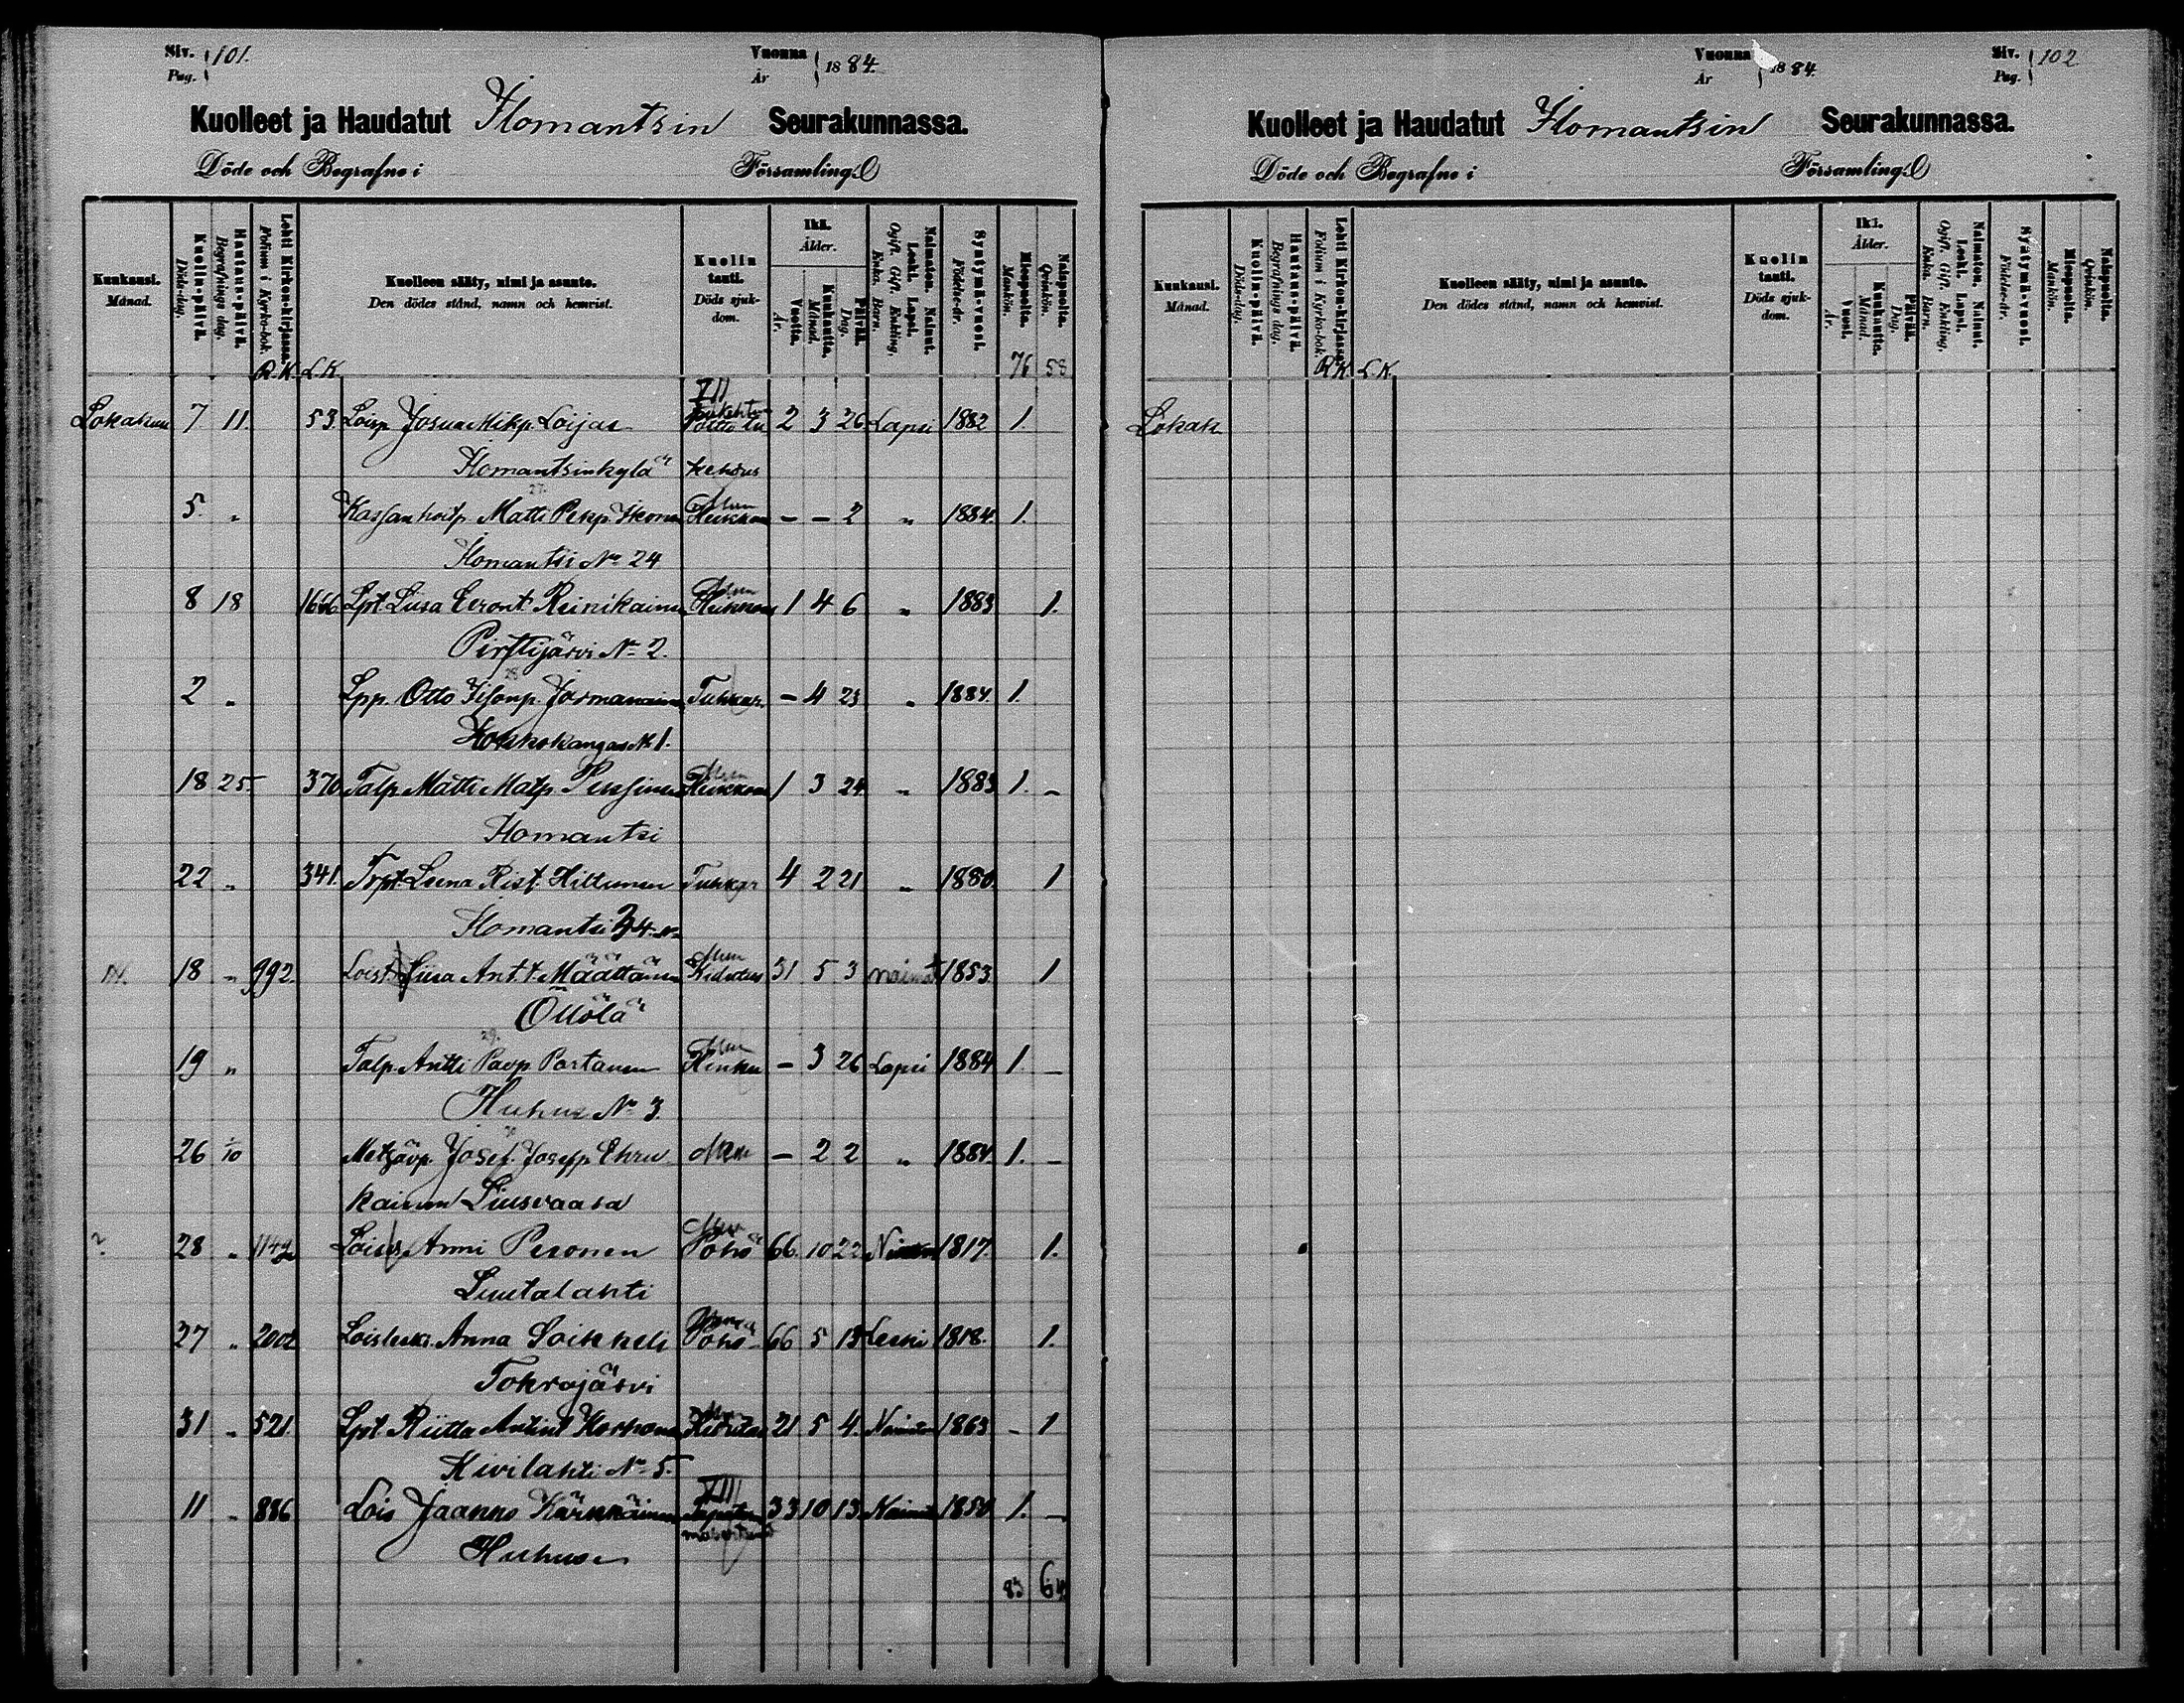 Siv. Pag. 101.
Vuonna År 1884.
Kuolleet ja Haudatut Ilomantsin Seurakunnassa.
Döde och Begrafne i Församling.
Kuukausi. Månad.
Kuolin-päivä. Döds-dag.
Hautaus-päivä. Begrafnings dag.
Lehti Kirkon-kirjassa. Folium i Kyrko-bok.
Kuolleen sääty, nimi ja asunto. Den dödes stånd, namn och hemvist.
Kuolin tauti. Döds sjukdom.
Ikä. Ålder.
Vuotta. År.
Kuukautta. Månad.
Päivää. Dag.
Naimaton. Nainut. Leski. Lapsi. Ogift. Gift. Enkling. Enka. Barn.
Syntymä-vuosi. Födelse-år.
Miespuolta. Mankön.
Naispuolta. Qvinkön.
R.K. L.K. 76 58
Lokakuu 7 11 53 Loisp. Josua Mikp. Loijas 2 3 26 Lapsi 1882 1.
Ilomantsinkylä
5. " Matti Pekp. Ikonen - - 2 " 1884. 1.
Ilomantsi No 24
8 18 1666 Lpt. Liisa Eeront. Reinikainen 1 4 6 " 1883 1.
Pirttijärvi No 2.
2 " Lpp. Otto Tuhkar. - 4 23 " 1884. 1.
Kokkokangas No 1.
18 25 370 Talp. Matti Matp. 1 3 24 " 1883 1. -
Ilomantsi
22 " 341. Leena Rist. Hiltunen Tuhkar 4 2 21 " 1880. 1
Ilomantsi
18 " 992. Loist. Liisa Ant.t. Määttänen 31 5 3 1853. 1
Öllölä
19 " Talp. Antti Paavp. Portanen - 3 26 Lapsi 1884 1. -
Huhus No 3.
26 Josef Josefp. - 2 2 " 1884. 1. -
Liusvaara
28 " Anni Peronen Pöhö 66. 10 22 1817. 1.
Luutalahti
27 " 2002 Loislesk. Anna Soikkeli Pöhö 66 5 13 Leski 1818. 1.
Tokrajärvi
31 " 521. Lpt. Riitta Antint Korhonen 21 5 4. 1863 - 1
Kivilahti No 5.
11 " 886 Lois Jaakko Kärkkäinen 33 10 13 1850 1. -
Huhus
83 64
Vuonna År 1884.
Siv. Pag. 102
Kuolleet ja Haudatut Ilomantsin Seurakunnassa.
Döde och Begrafne i Församling.
Kuukausi. Månad.
Kuolin-päivä. Döds-dag.
Hautaus-päivä. Begrafnings dag.
Lehti Kirkon-kirjassa. Folium i Kyrko-bok.
Kuolleen sääty, nimi ja asunto. Den dödes stånd, namn och hemvist.
Kuolin tauti. Döds sjukdom.
Ikä. Ålder.
Vuosi. År.
Kuukautta. Månad.
Päivää. Dag.
Naimaton. Nainut. Leski. Lapsi. Ogift. Gift. Enkling. Enka. Barn.
Syntymä-vuosi. Födelse-år.
Miespuolta. Mankön.
Naispuolta. Qvinkön.
R.K. L.K.
Lokak